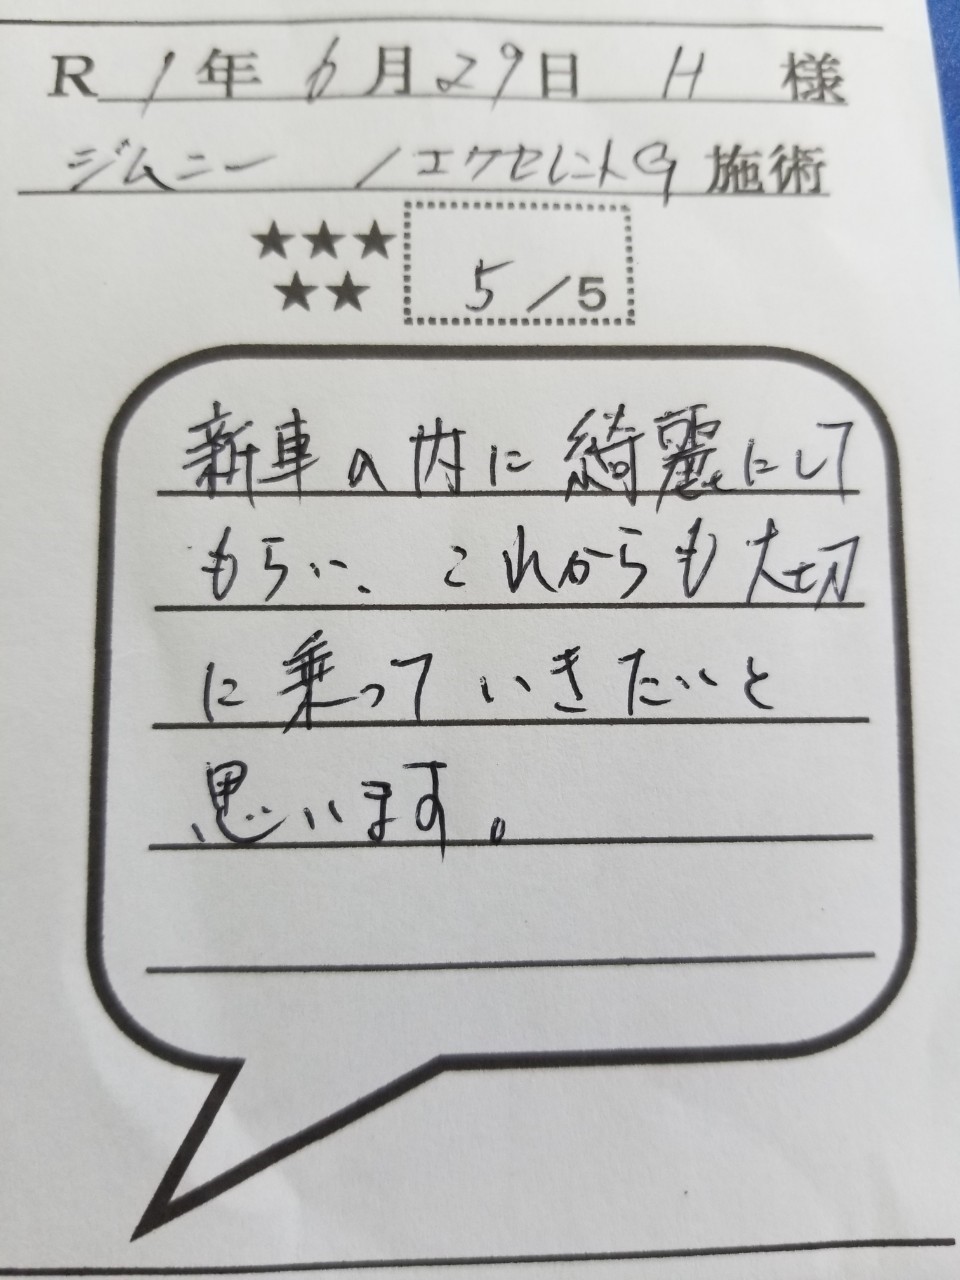 R 1年 6月29日 H 様
ジムニー /エクセレントG 施術
★★★
★★ 5/5
新車の内に綺麗にして
もらい、これからも大切
に乗っていきたいと
思います。